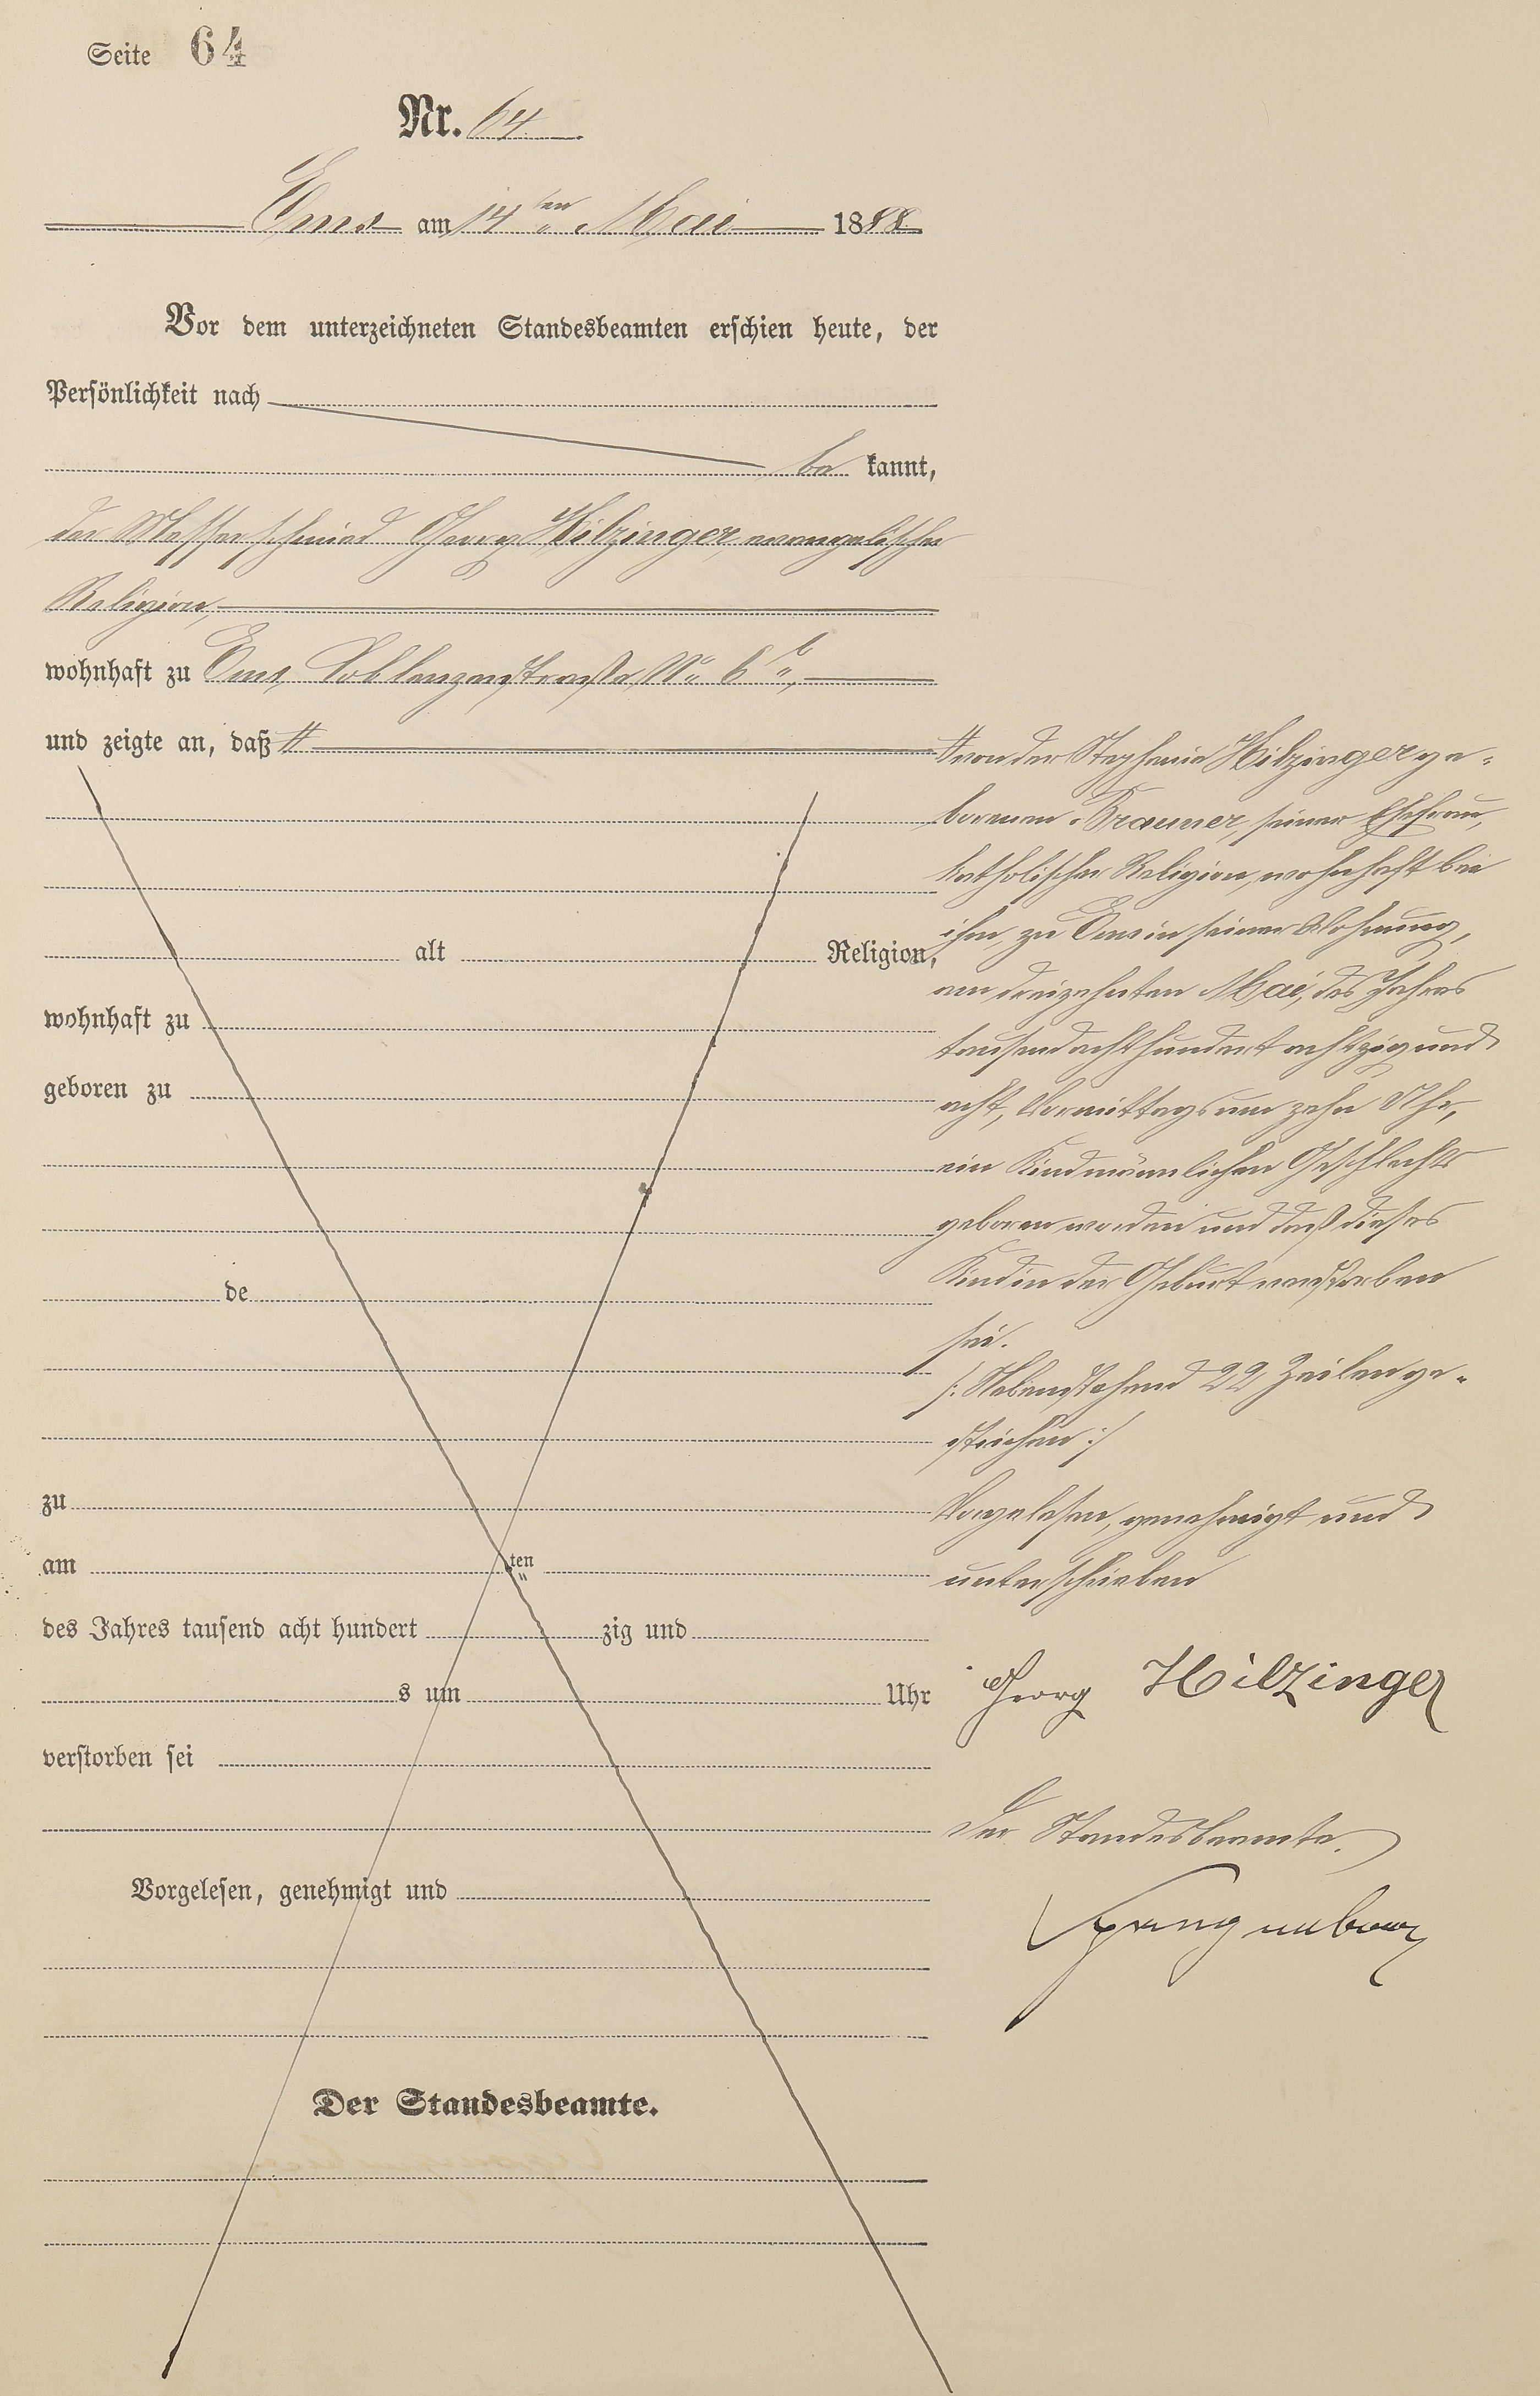 Seite 64
Nr. 64
Ems am 14ten Mai 1888.
Vor dem unterzeichneten Standesbeamten erschien heute, der
Persönlichkeit nach
be kannt,
der Messerschmied Georg Hilzinger, evangelischer
Religion,
wohnhaft zu Ems, Coblenzerstraße No 6b,
und zeigte an, daß #
alt Religion,
wohnhaft zu
geboren zu
de
zu
am ten
des Jahres tausend acht hundert zig und
s um Uhr
verstorben sei
Vorgelesen, genehmigt und
Der Standesbeamte.
# von der Stephanie Hilzinger ge-
borenen Brauner, seiner Ehefrau,
katholischer Religion, wohnhaft bei
ihm, zu Ems in seiner Wohnung,
am dreizehnten Mai, des Jahres
tausend acht hundert achtzig und
acht, Vormittags um zehn Uhr,
ein Kind männlichen Geschlechts
geboren worden und daß dieses
Kind in der Geburt verstorben
sei.
/: Nebenstehend 22 Zeilen ge-
strichen :/
Vorgelesen, genehmigt und
unterschrieben
Georg Hilzinger
Der Standesbeamte.